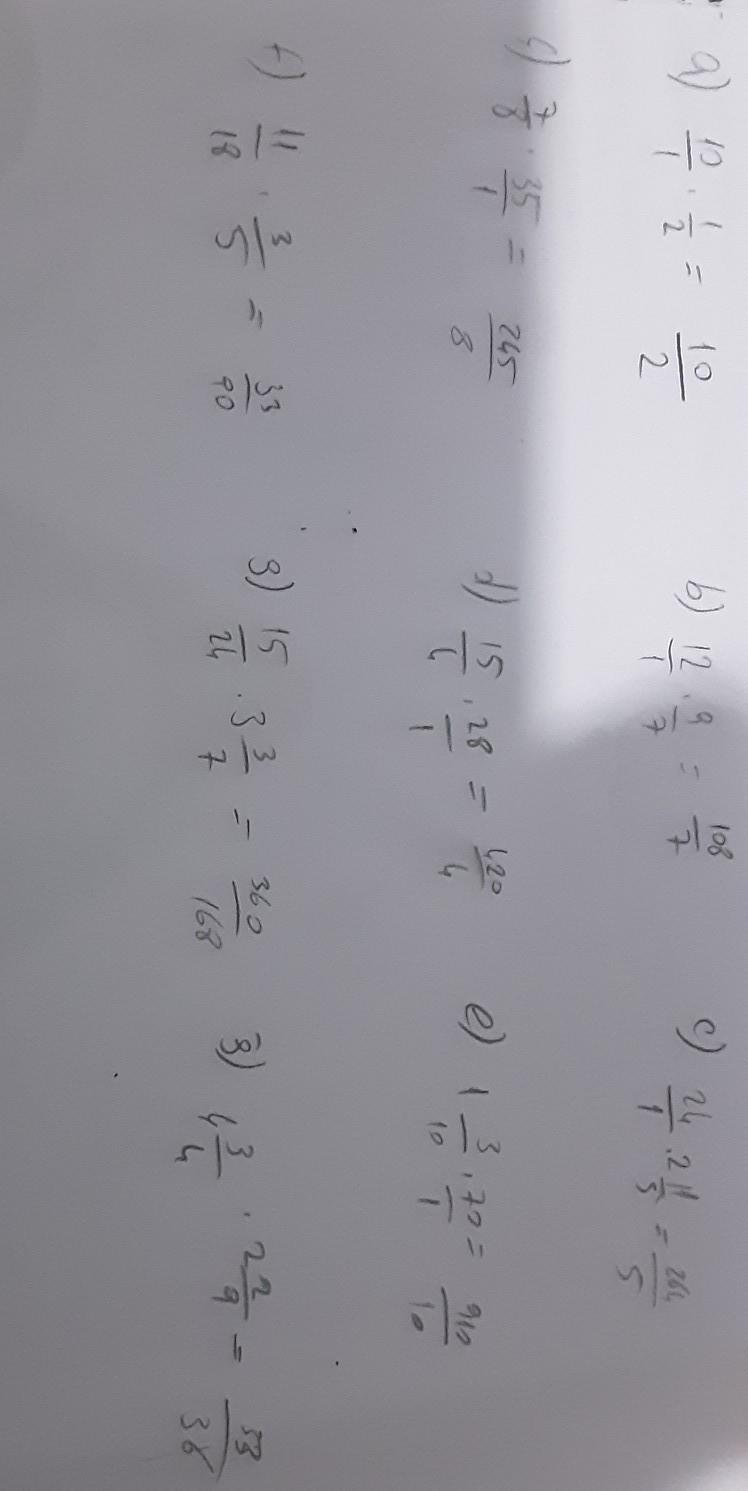 a) 10/1 · 1/2 = 10/2 b) 12/1 · 9/7 = 108/7 c) 24/1 · 2 11/5 = 264/5
č) 7/8 · 35/1 = 245/8 d) 15/4 · 28/1 = 420/4 e) 1 3/10 · 70/1 = 910/10
f) 11/18 · 3/5 = 33/90 g) 15/24 · 3 3/7 = 360/168 ğ) 4 3/4 · 2 2/9 = /36